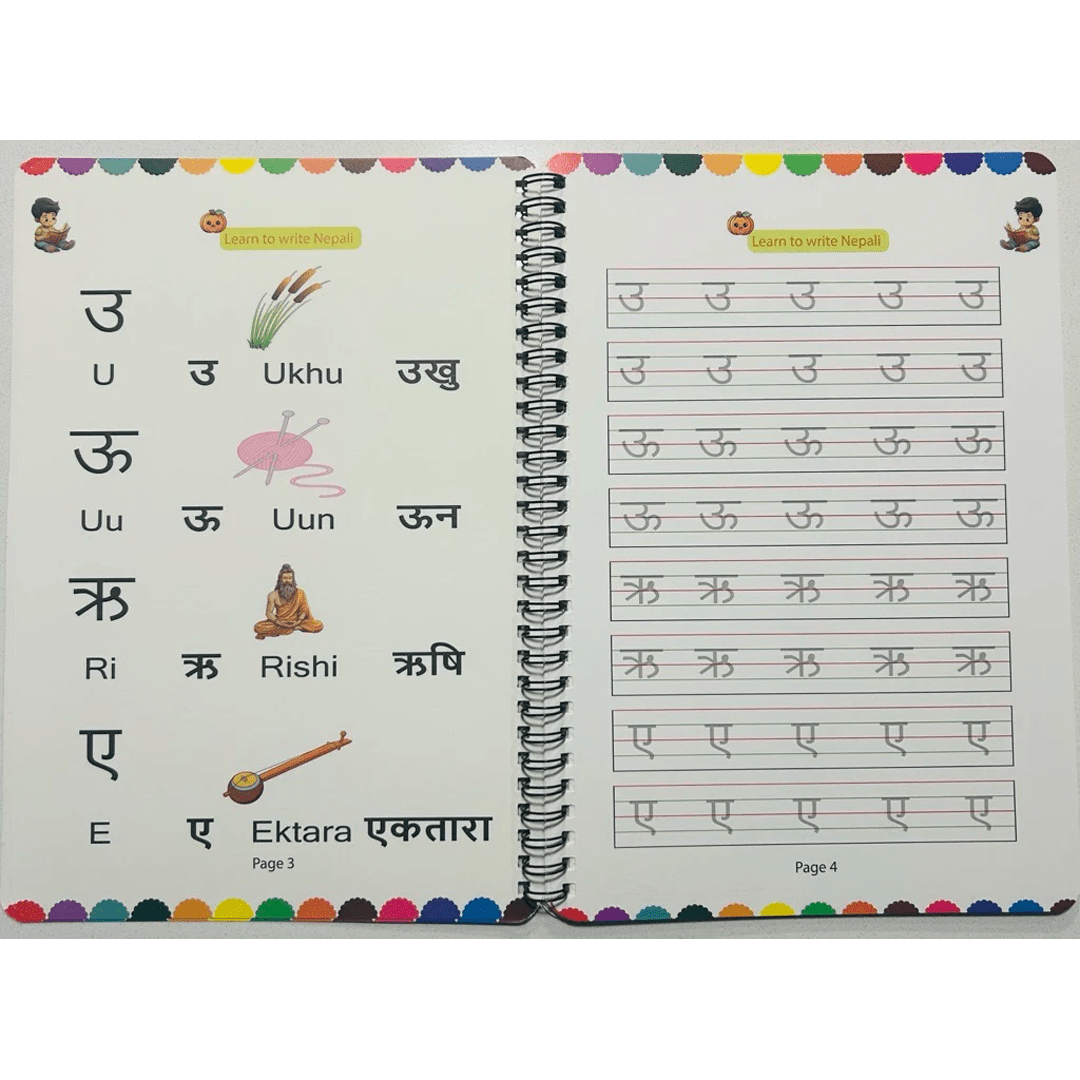 Learn to write Nepali
उ
U उ Ukhu उखु
ऊ
Uu ऊ Uun ऊन
ऋ
Ri ऋ Rishi ऋषि
ए
E ए Ektara एकतारा
Page 3
Learn to write Nepali
उ उ उ उ उ
उ उ उ उ उ
ऊ ऊ ऊ ऊ ऊ
ऊ ऊ ऊ ऊ ऊ
ऋ ऋ ऋ ऋ ऋ
ऋ ऋ ऋ ऋ ऋ
ए ए ए ए ए
ए ए ए ए ए
Page 4